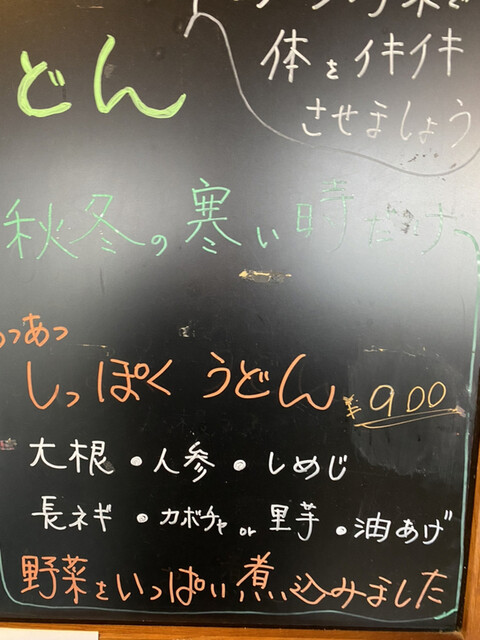 体をイキイキ
させましょう
どん
秋冬の寒い時だけ
あつ
しっぽくうどん ¥900
大根・人参・しめじ
長ネギ・カボチャor里芋・油あげ
野菜をいっぱい煮込みました